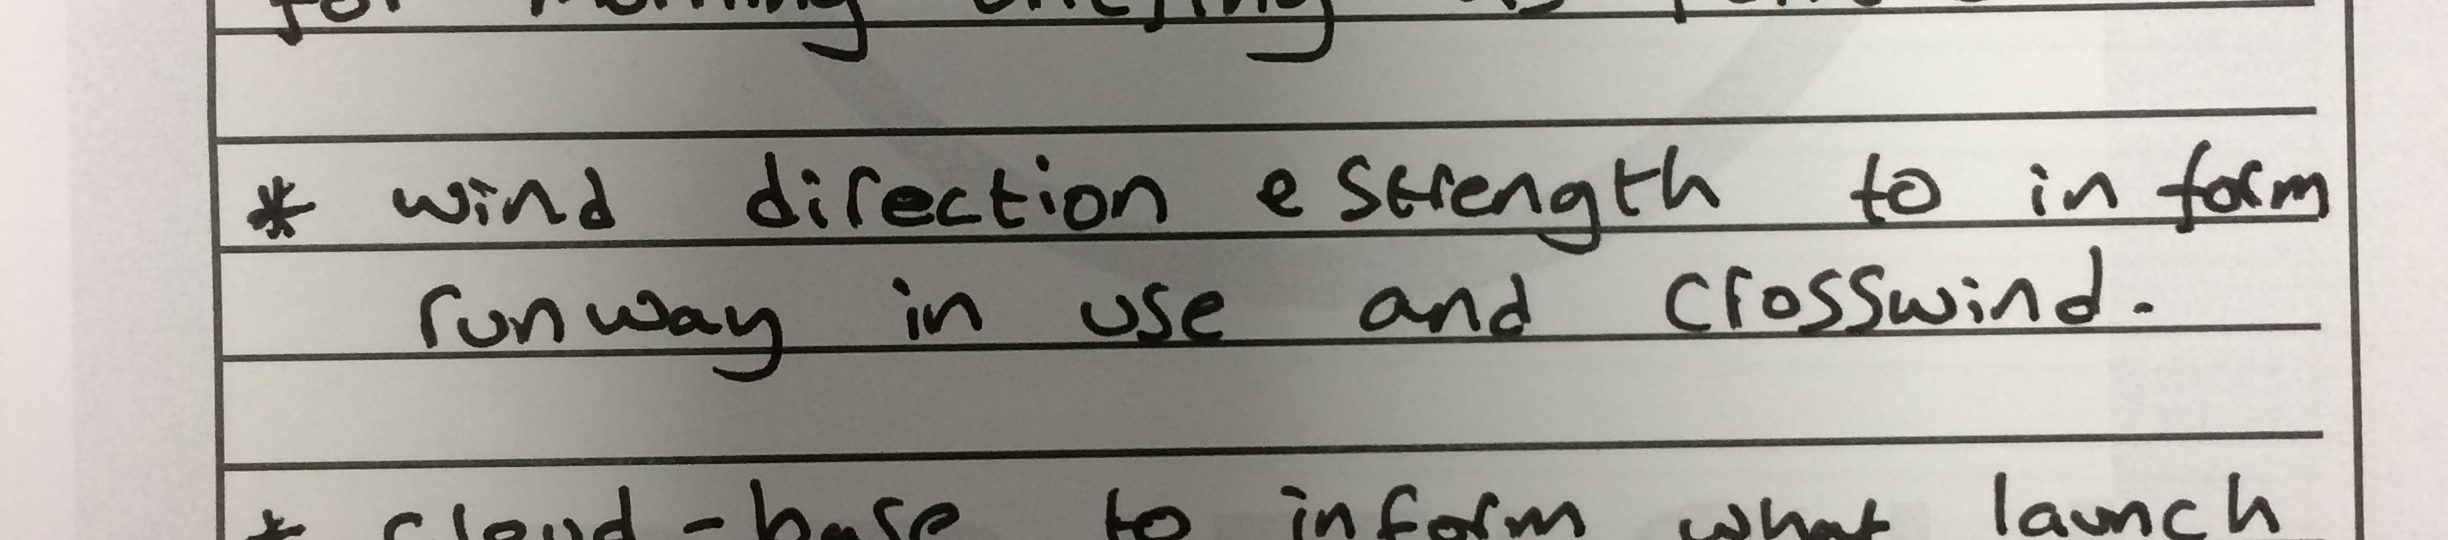 for morning briefing as
* wind direction e strength to inform
runway in use and crosswind.
* cloud-base to inform what launch